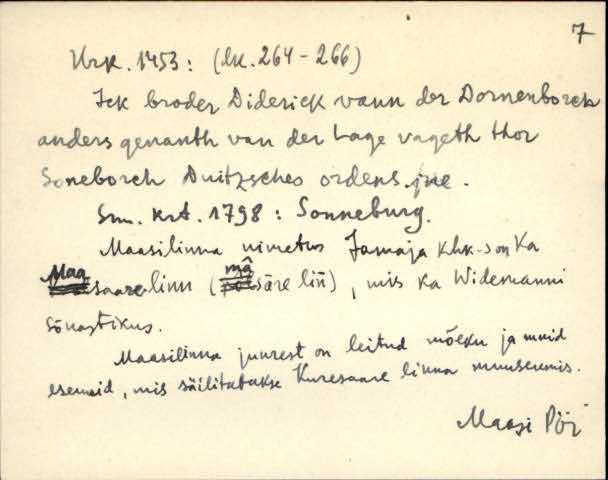 7
Urk. 1453: (lk. 264-266)
Ick broder Diderick vann der Dornenborch
anders genanth van der Lage vageth thor
Soneborch Duitzsches ordens jne.
Sm. krt. 1798: Sonneburg.
Maasilinna nimetus Jamaja khk-s on ka
Maa saare linn (mâ säre liñ), mis ka Wiedemanni
sõnastikus.
Maasilinna juurest on leitud mõeku ja muid
esemeid, mis säilitatakse Kuresaare linna muuseumis.
Maasi Pöi